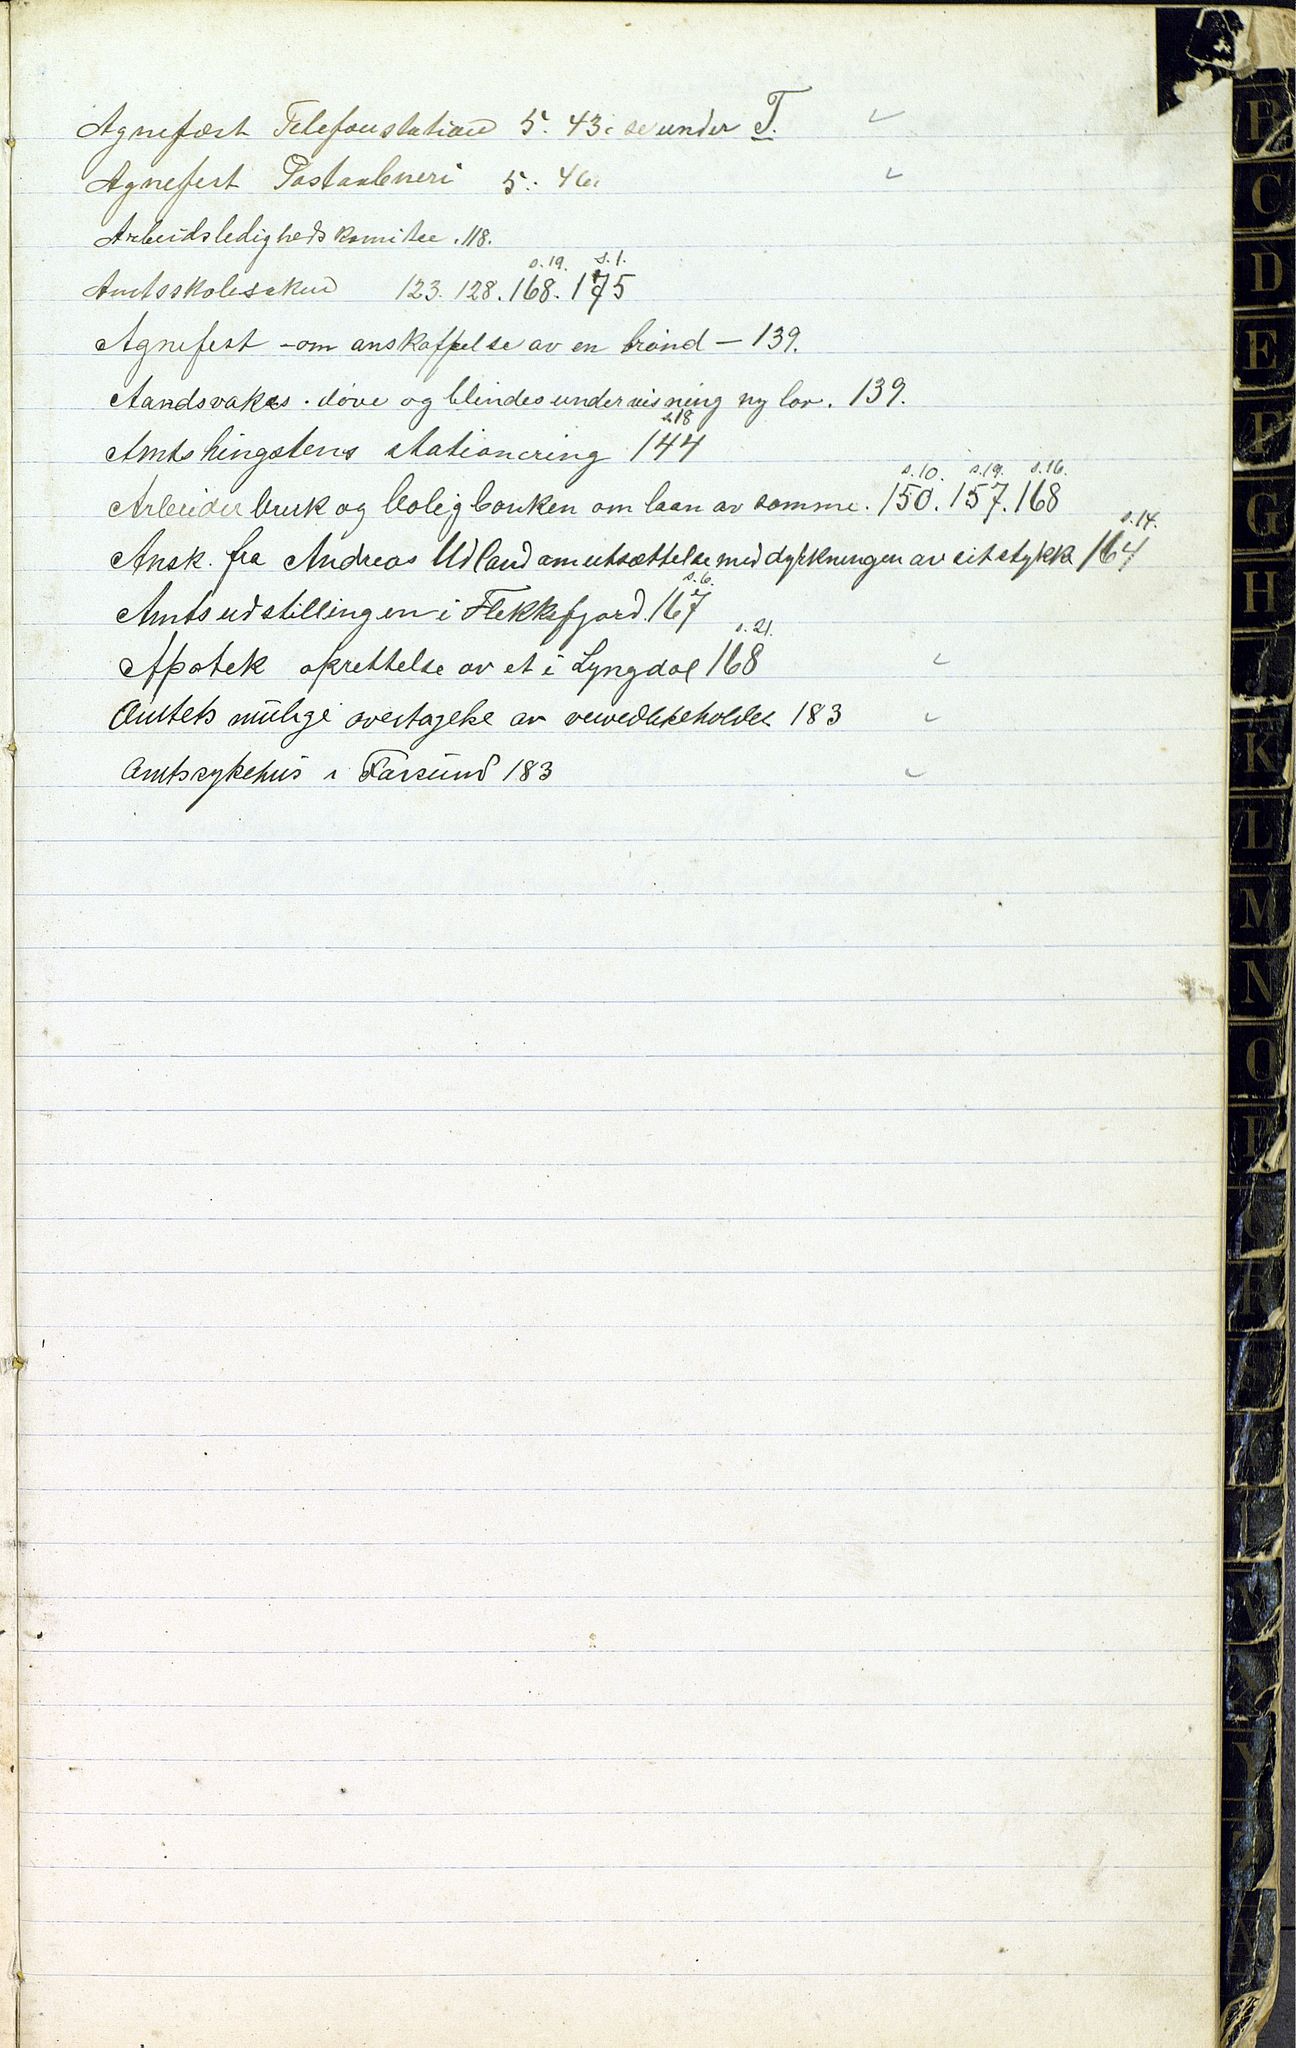 Agnefæst Telefonstation 5. 43. se under T.
Agnefest Postaabneri 5. 46.
Arbeidsledighedskomitee .118.
s.19. s.1.
Amtsskolesaken 123. 128. 168. 175
Agnefest - om anskaffelse av en brønd - 139.
Aandsvakes. døve og blindes undervisning ny lov. 139.
s18
Amtshingstens stationering 144
s.10. s.19. s.16.
Arbeiderbruk og boligbanken om laan av samme. 150. 157. 168
s.14.
Ansk. fra Andreas Udland om utsættelse med dyrkningen av sit stykke 164
s.6.
Amtsudstillingen i Flekkefjord. 167
s.21.
Apotek oprettelse av et i Lyngdal 168
Amtets mulige overtagelse av veivedlikeholdet 183
Amtssykehus i Farsund 183
B
C
D
E
F
G
H
J
K
L
M
N
O
P
Q
R
S
V
Y